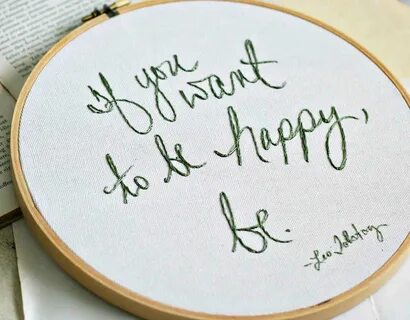 If you
want
to be happy,
be.
-Leo Tolstoy